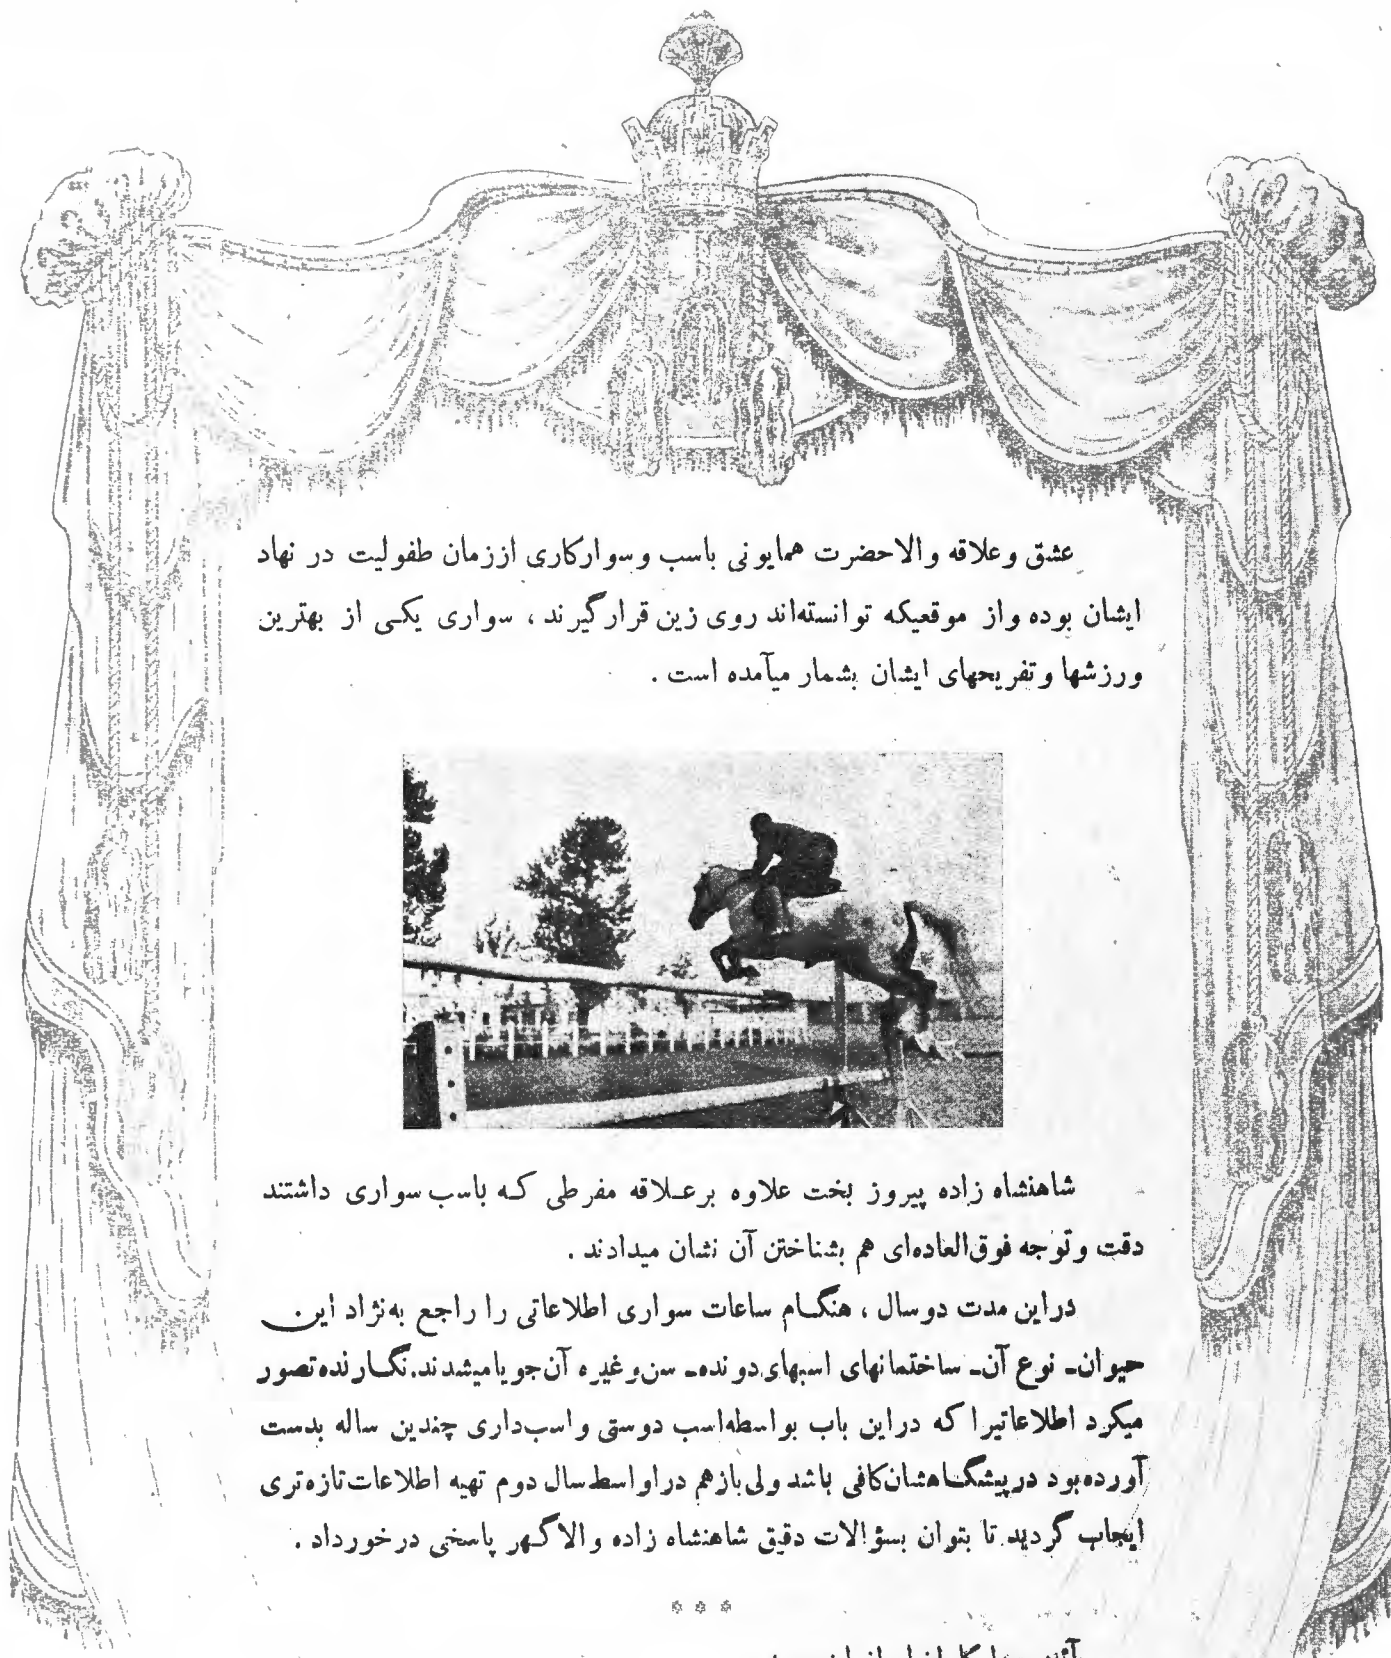 عشق وعلاقه والاحضرت همایونی باسب وسوارکاری اززمان طفولیت در نهاد
ایشان بوده واز موقعیکه توانسته‌اند روی زین قرارگیرند ، سواری یکی از بهترین
ورزشها وتفریحهای ایشان بشمار میآمده است .
شاهنشاه زاده پیروز بخت علاوه برعلاقه مفرطی که باسب سواری داشتند
دقت وتوجه فوق‌العاده‌ای هم بشناختن آن نشان میدادند .
دراین مدت دوسال ، هنگام ساعات سواری اطلاعاتی را راجع به‌نژاد این
حیوان۔ نوع آن۔ ساختمانهای اسبهای دونده۔ سن‌وغیره آن‌جویامیشدند.نگارنده‌تصور
میکرد اطلاعاتیرا که دراین باب بواسطه‌اسب دوستی واسب‌داری چندین ساله بدست
آورده‌بود درپیشگاهشان‌کافی باشد ولی‌بازهم دراواسط‌سال دوم تهیه اطلاعات‌تازه‌تری
ایجاب گردید تا بتوان بسؤالات دقیق شاهنشاه زاده والاگهر پاسخی درخورداد .